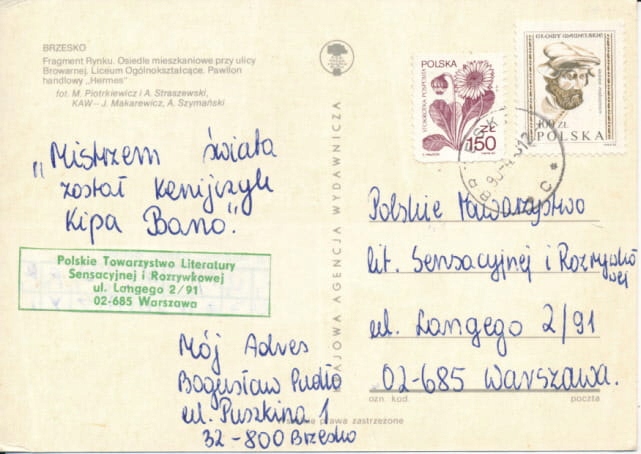 BRZESKO
Fragment Rynku. Osiedle mieszkaniowe przy ulicy
Browarnej. Liceum Ogólnokształcące. Pawilon
handlowy „Hermes"
fot. M. Piotrkiewicz i A. Straszewski,
KAW – J. Makarewicz, A. Szymański
„Mistrzem świata
został kenijczyk
Kipa Bano".
Polskie Towarzystwo Literatury
Sensacyjnej i Rozrywkowej
ul. Langego 2/91
02-685 Warszawa
Mój Adres
Bogusław Pudło
ul. Puszkina 1
32-800 Brzesko
KRAJOWA AGENCJA WYDAWNICZA
prawa zastrzeżone
POLSKA
ZŁ
150
GŁOWY WAWELSKIE
100 ZŁ
POLSKA
Polskie Towarzystwo
Lit. Sensacyjnej i Rozrywko
wej
ul. Langego 2/91
02-685 Warszawa.
ozn. kod.
poczta